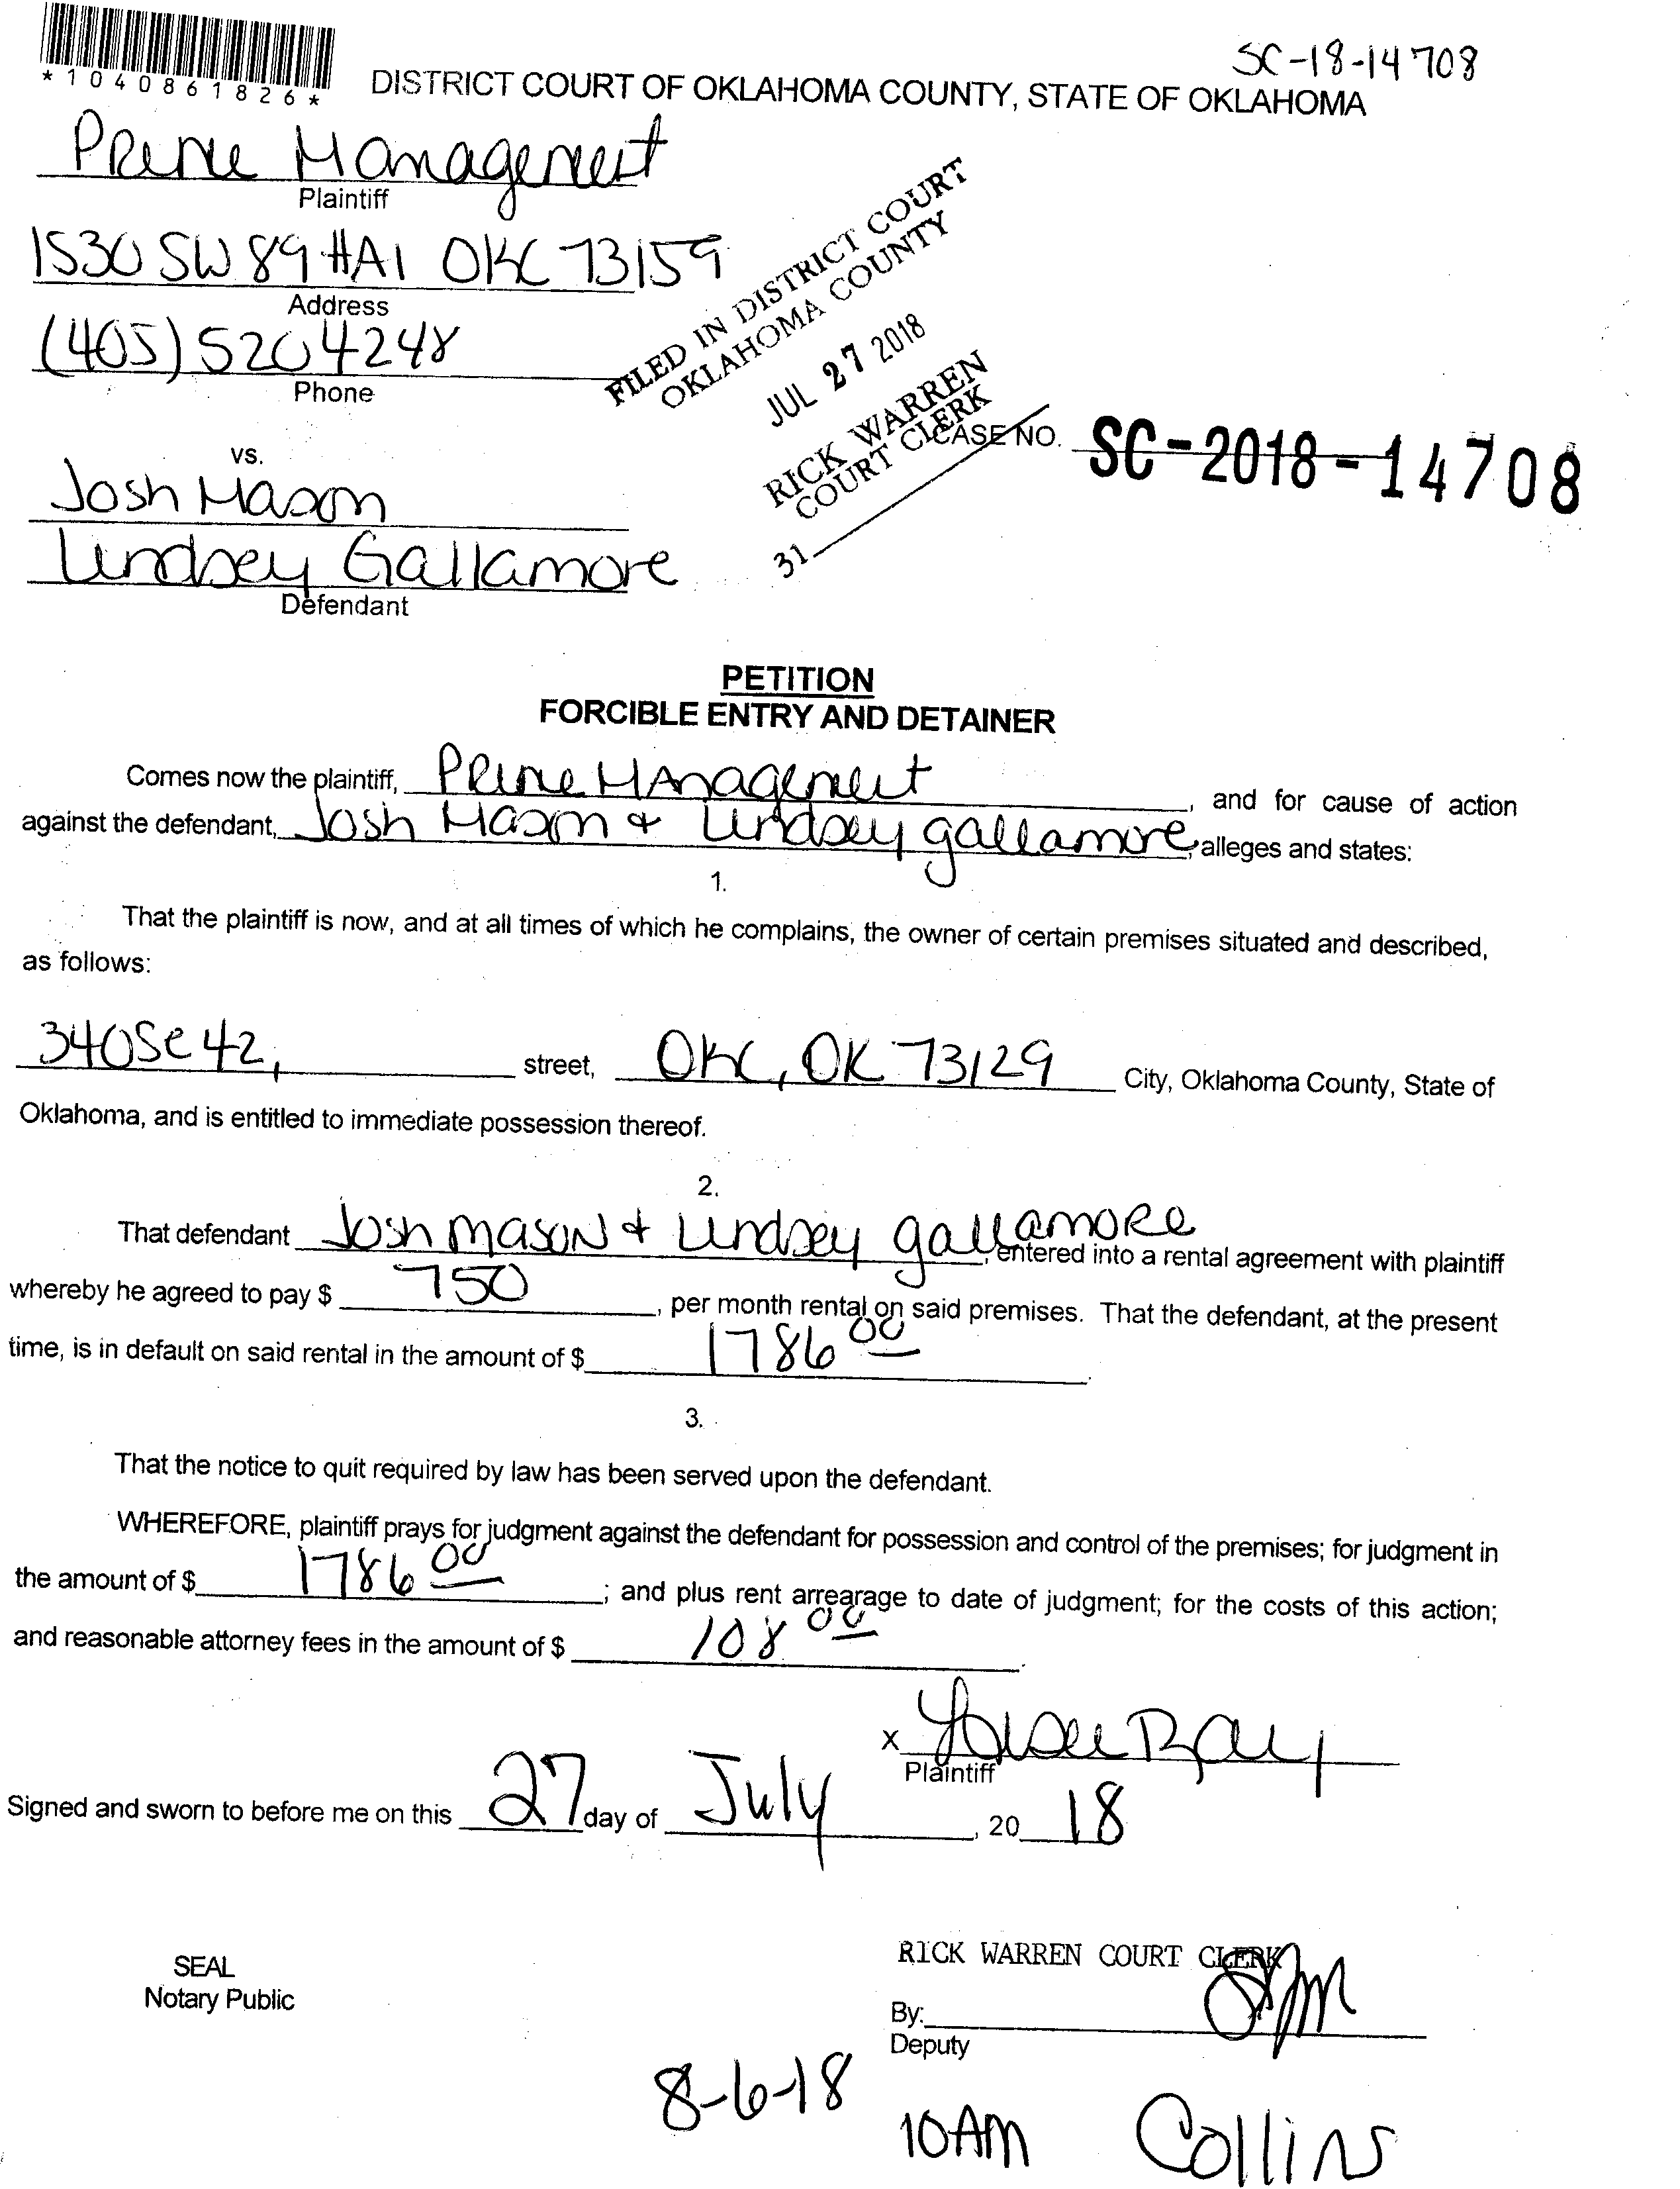 SC-18-14708
*1040861826*
DISTRICT COURT OF OKLAHOMA COUNTY, STATE OF OKLAHOMA
Prime Management
Plaintiff
1530 SW 89 #A1 OKC 73159
Address
(405) 520 4248
Phone
FILED IN DISTRICT COURT
OKLAHOMA COUNTY
JUL 27 2018
RICK WARREN
COURT CLERK
31
CASE NO. SC-2018-14708
vs.
Josh Mason
Lindsey Gallamore
Defendant
PETITION
FORCIBLE ENTRY AND DETAINER
Comes now the plaintiff, Prime Management, and for cause of action
against the defendant, Josh Mason + Lindsey gallamore, alleges and states:
1.
That the plaintiff is now, and at all times of which he complains, the owner of certain premises situated and described,
as follows:
340 Se 42, street, OKC, OK 73129 City, Oklahoma County, State of
Oklahoma, and is entitled to immediate possession thereof.
2.
That defendant Josh Mason + Lindsey gallamore, entered into a rental agreement with plaintiff
whereby he agreed to pay $ 750, per month rental on said premises. That the defendant, at the present
time, is in default on said rental in the amount of $ 1786 00.
3.
That the notice to quit required by law has been served upon the defendant.
WHEREFORE, plaintiff prays for judgment against the defendant for possession and control of the premises; for judgment in
the amount of $ 1786 00; and plus rent arrearage to date of judgment; for the costs of this action;
and reasonable attorney fees in the amount of $ 108 00.
x
Plaintiff
Signed and sworn to before me on this 27 day of July, 20 18
SEAL
Notary Public
RICK WARREN COURT CLERK
By:
Deputy
8-6-18
10AM Collins